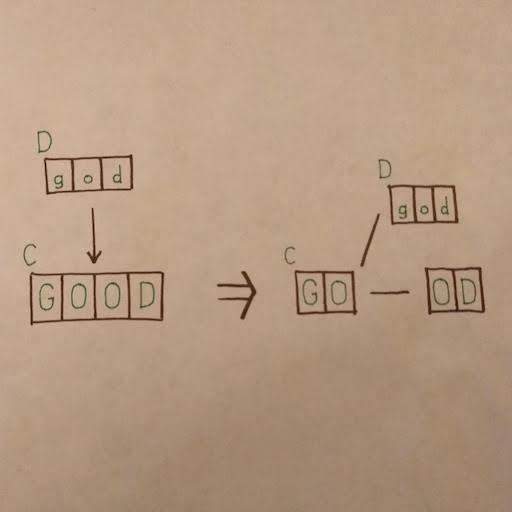 D
god
C
GOOD
D
god
C
GO
OD